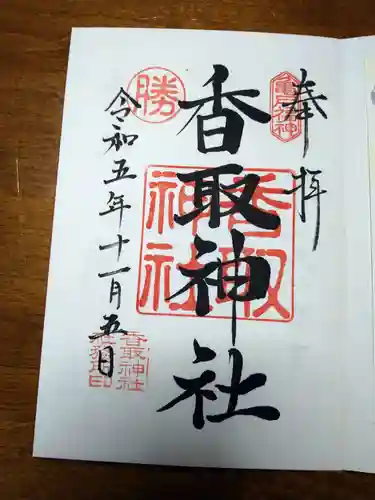 奉拝
亀戸香取
香取神社
香取神社
勝
令和五年十一月五日
香取神社